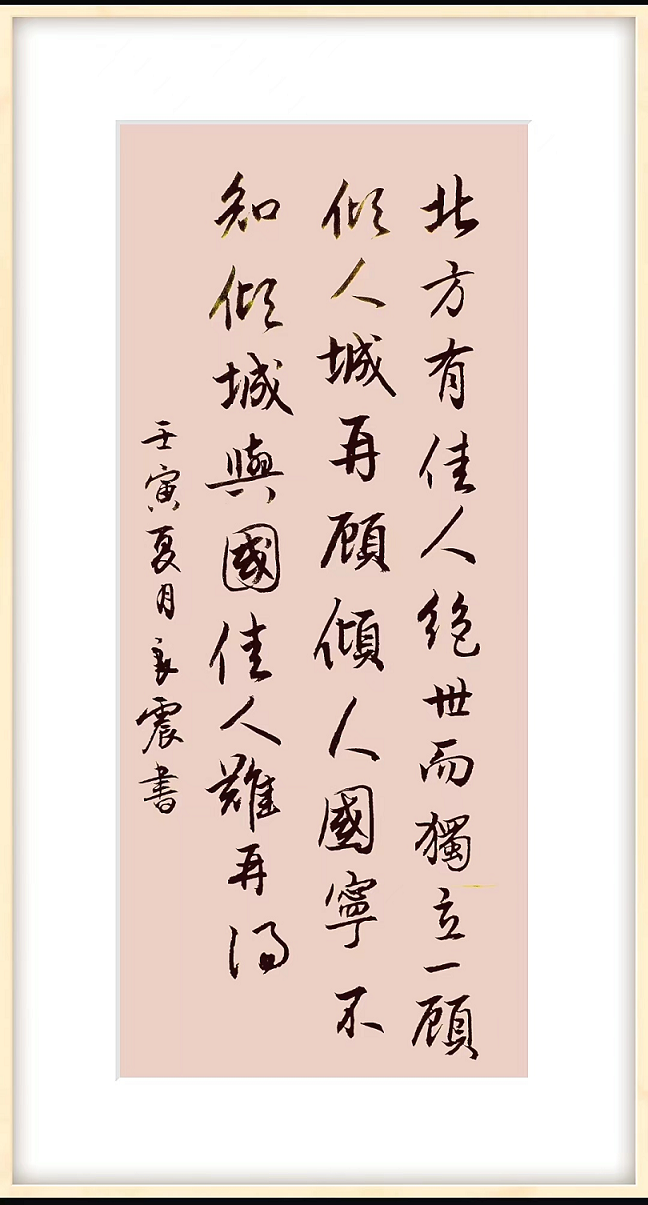 北方有佳人絶世而獨立一顾
傾人城再顾傾人國寧不
知傾城與國佳人難再得
壬寅夏月永震書